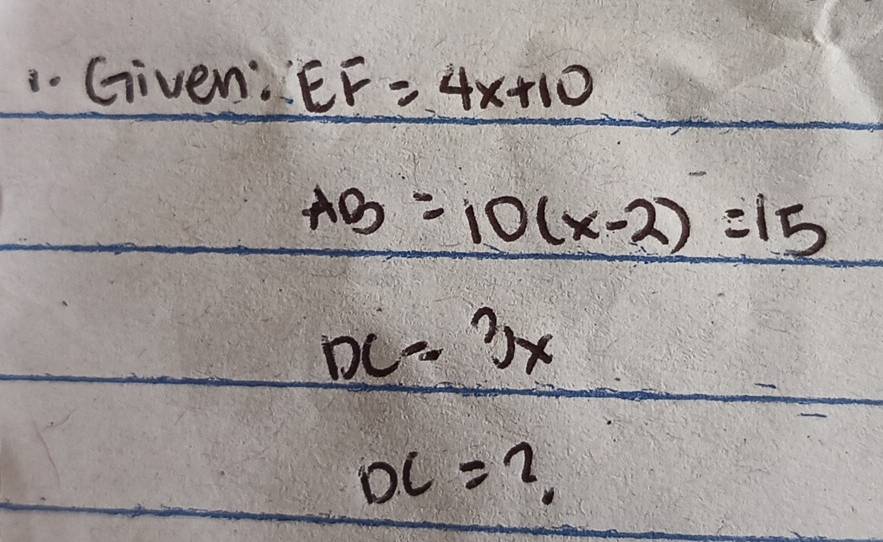 1. Given: EF = 4x+10
AB = 10(x-2) = 15
DC = 3x
DC = ?